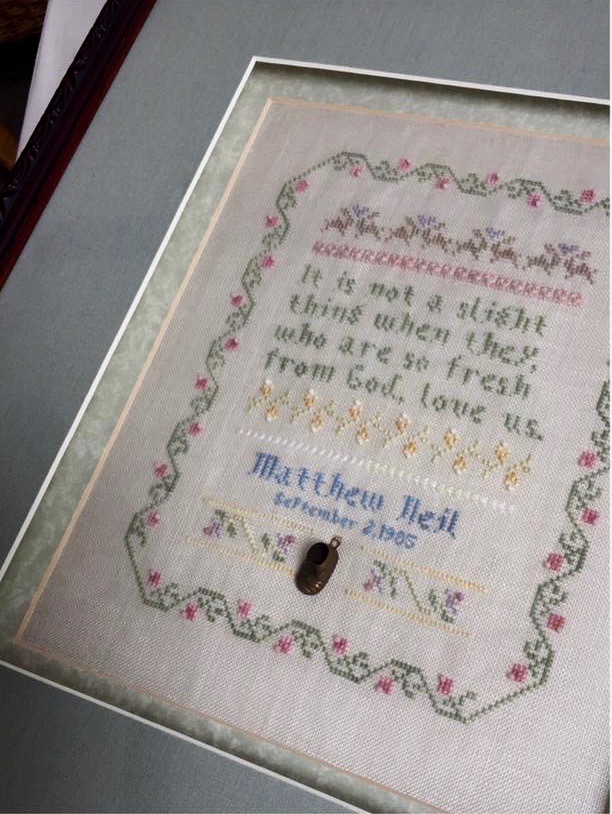 It is not a slight
thing when they,
who are so fresh
from God, love us.
Matthew Neil
September 2, 1985